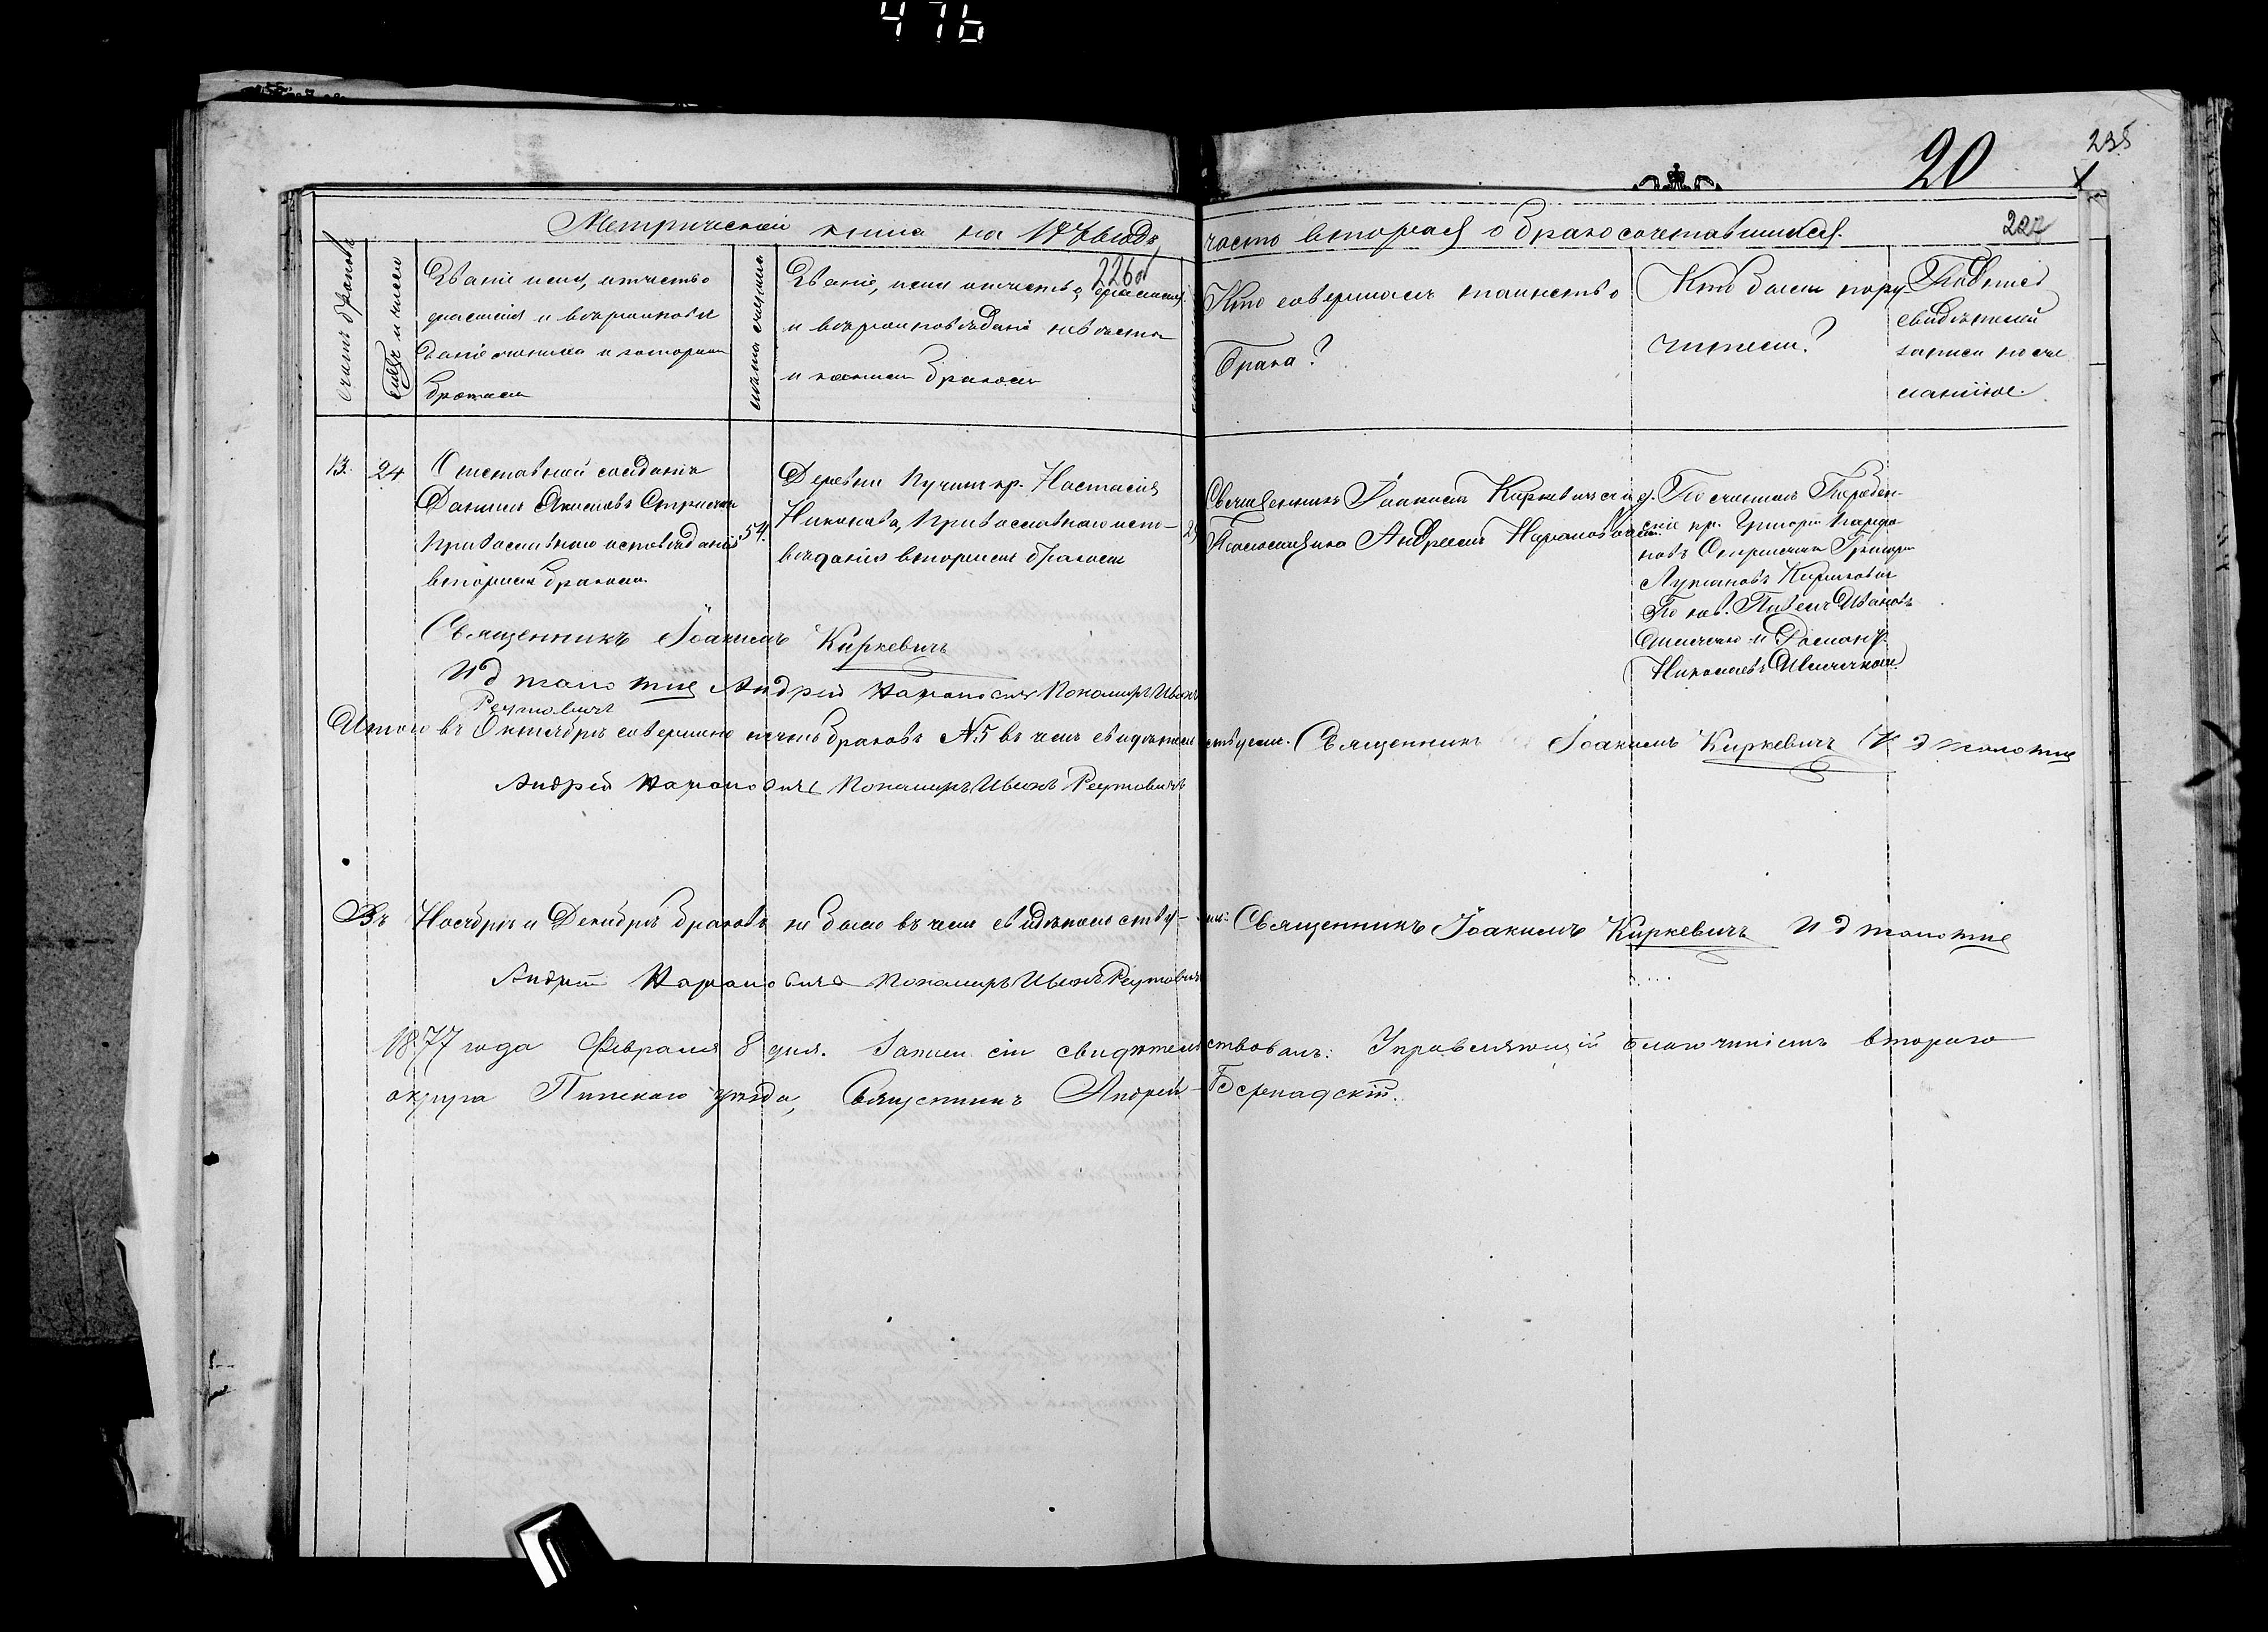 476
20
235
Метрической книга на 1876 годъ,
часть вторая о бракосочетавшихся.
227
226об
Счетъ браковъ
и число
Званіе имя, отчество
фамилія и вѣроисповѣ
даніе жениха и которымъ
бракомъ
Званіе, имя отчество, фамилія
и вѣроисповѣданіе невѣсты
и какимъ бракомъ
Кто совершалъ таинство
брака?
Кто были пору-
чители?
Подпись
свидѣтелей
записи по же
ланію.
13.
24
Отставной солдатъ
Даніилъ
Православнаго исповѣданія
вторымъ бракомъ
54.
Деревни кр. Настасія
Никонова, Православнаго испо-
вѣданія вторымъ бракомъ
Священникъ Іоакимъ Киркевичъ съ и. д.
Псаломщика Андреемъ
По женихѣ
кр. Григорій
Григорій
По нев. Павелъ Ивановъ
и Романъ
Николаевъ
Священникъ Іоакимъ Киркевичъ
И д Андрей Пономарь Иванъ
Реутовичъ
Итого въ Октябрѣ совершено пять браковъ №5 въ чемъ свидѣтель
ствуемъ. Священникъ Іоакимъ Киркевичъ И д
Андрей Пономарь Иванъ Реутовичъ
Въ Ноябрѣ и Декабрѣ браковъ не было въ чемъ свидѣтельству-
емъ: Священникъ Іоакимъ Киркевичъ И д
Андрей Пономарь Иванъ Реутовичъ
1877 года Февраля 8 дня. Записи сіи свидѣтель
ствовалъ: Управляющій благочиніемъ втораго
округа Пинскаго уѣзда, Священникъ Андрей Бернадскій.